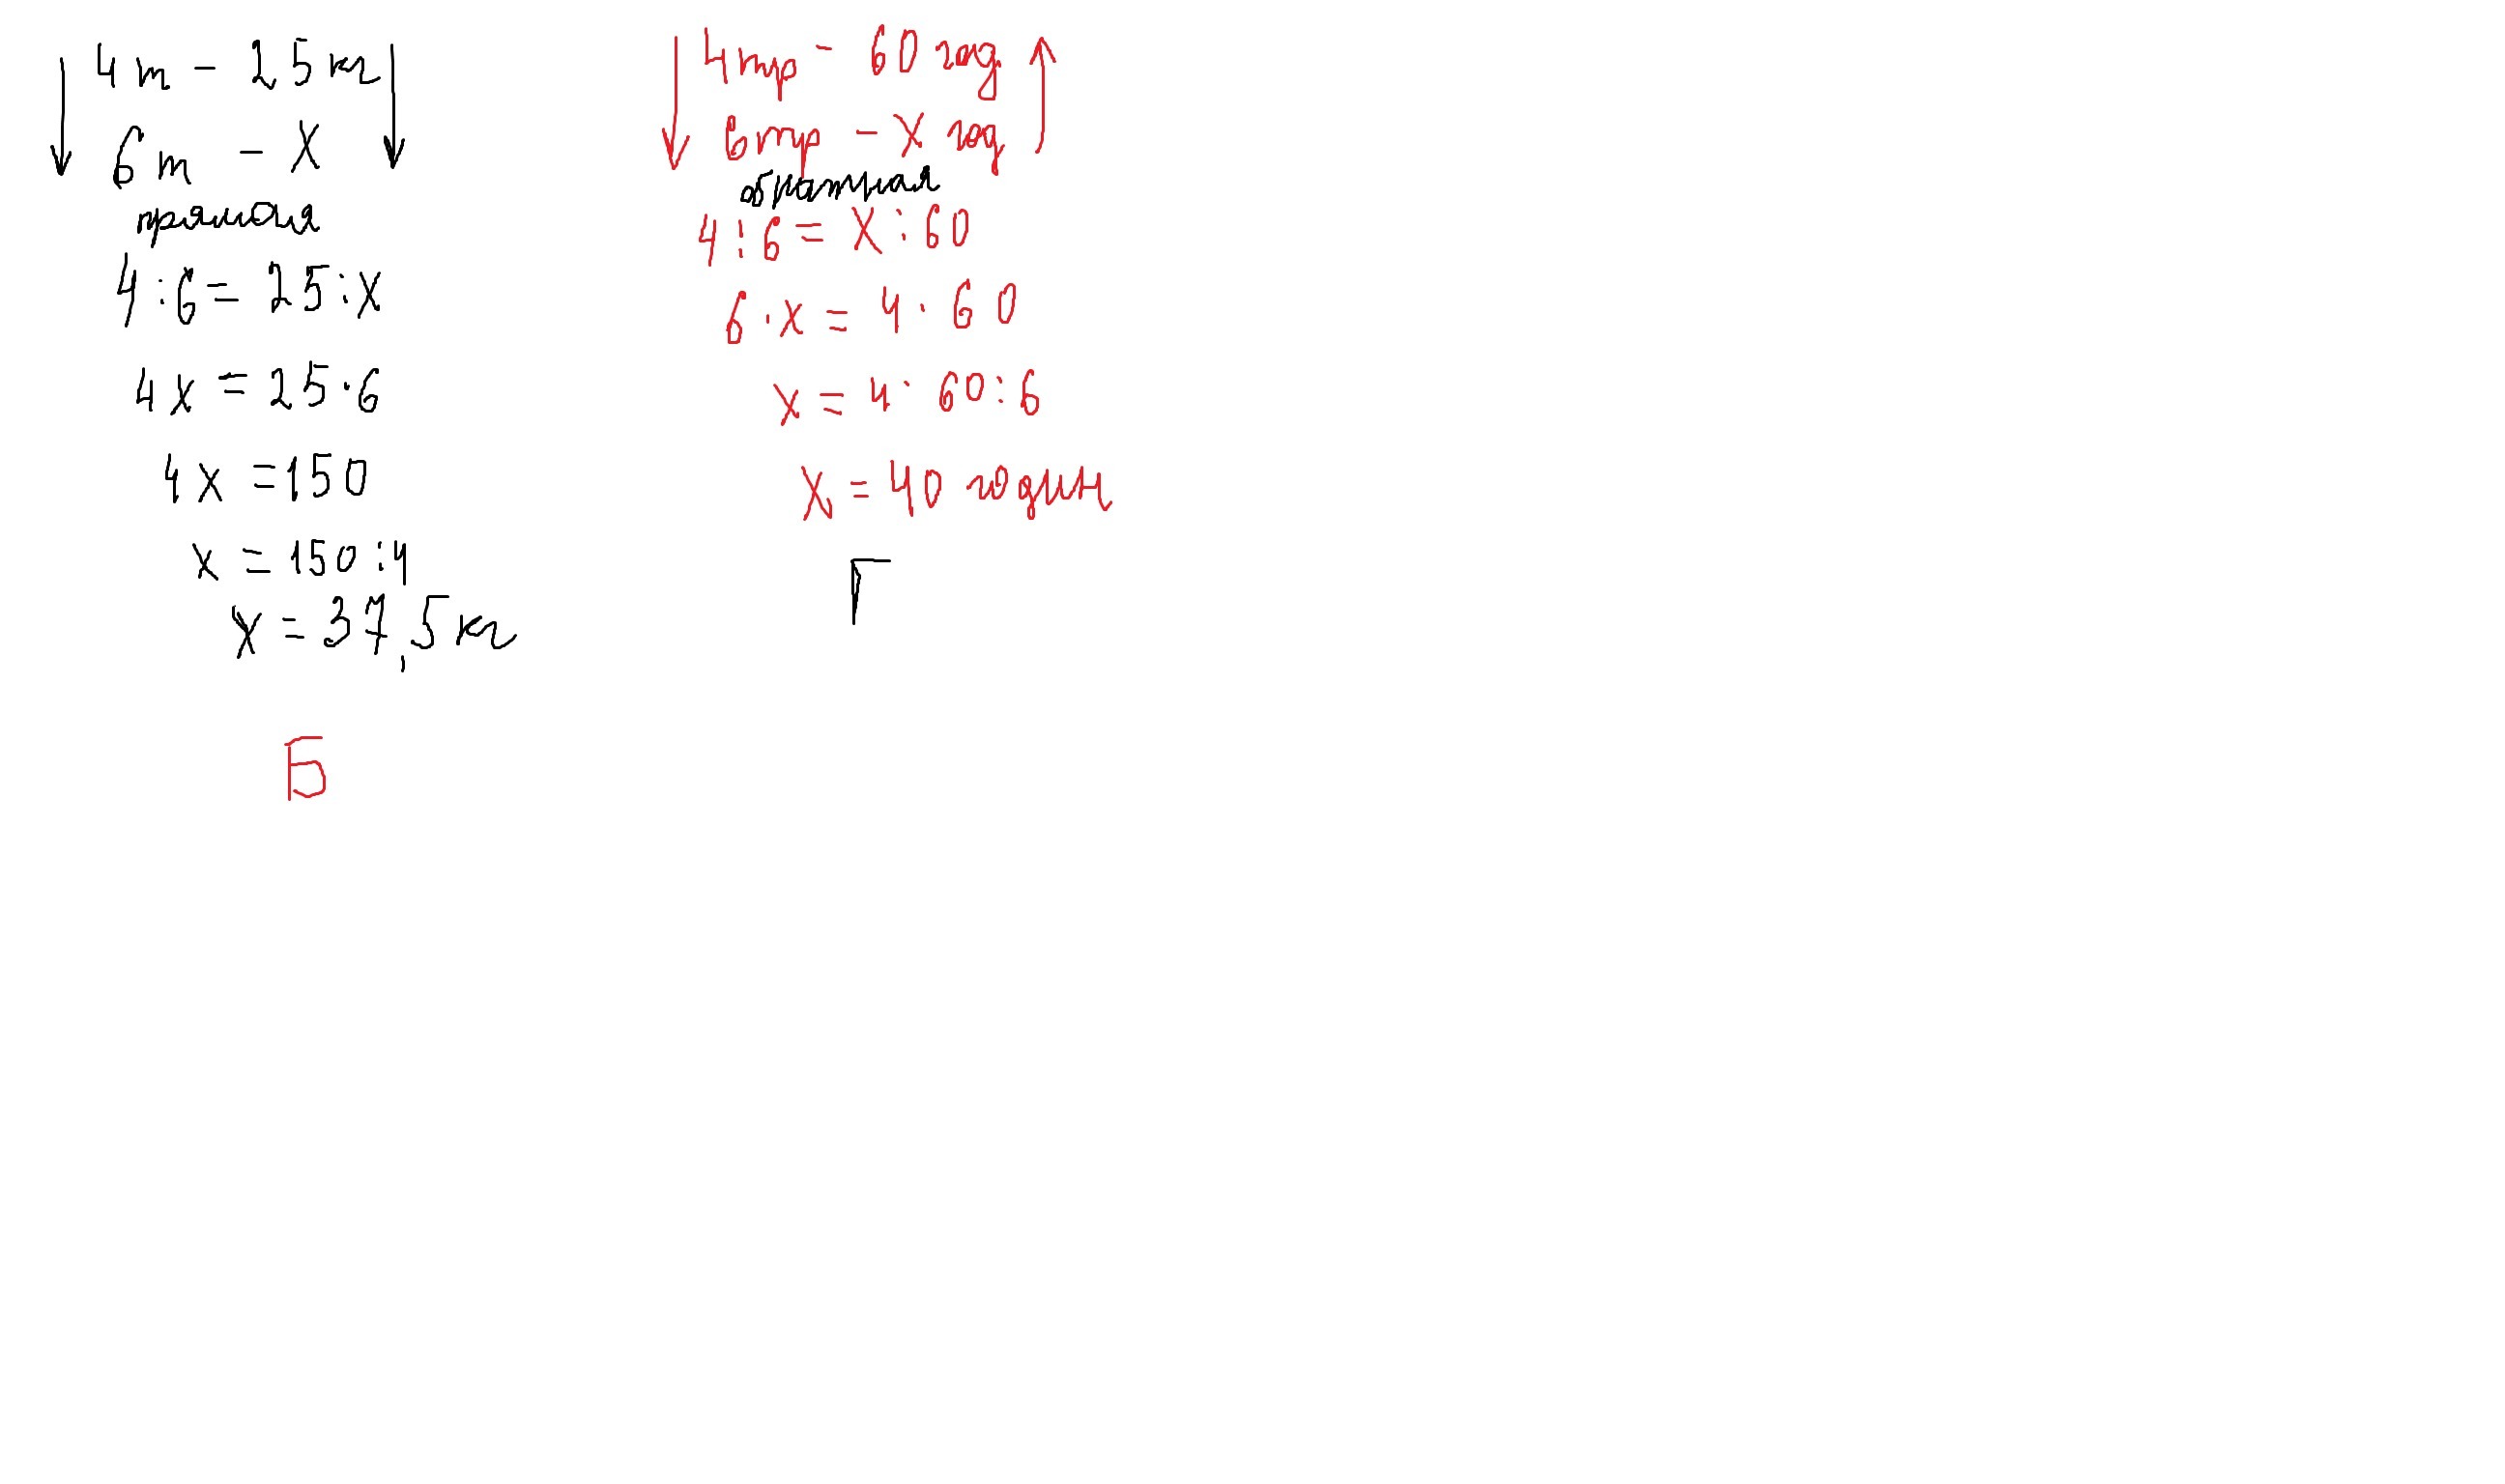 4т - 25м
6т - x
прямая
4 : 6 = 25 : x
4x = 25 · 6
4x = 150
x = 150 : 4
x = 37,5м
Б
4тр - 60 год
6тр - x год
обратная
4 : 6 = x : 60
6 · x = 4 · 60
x = 4 · 60 : 6
x = 40 годин
Г